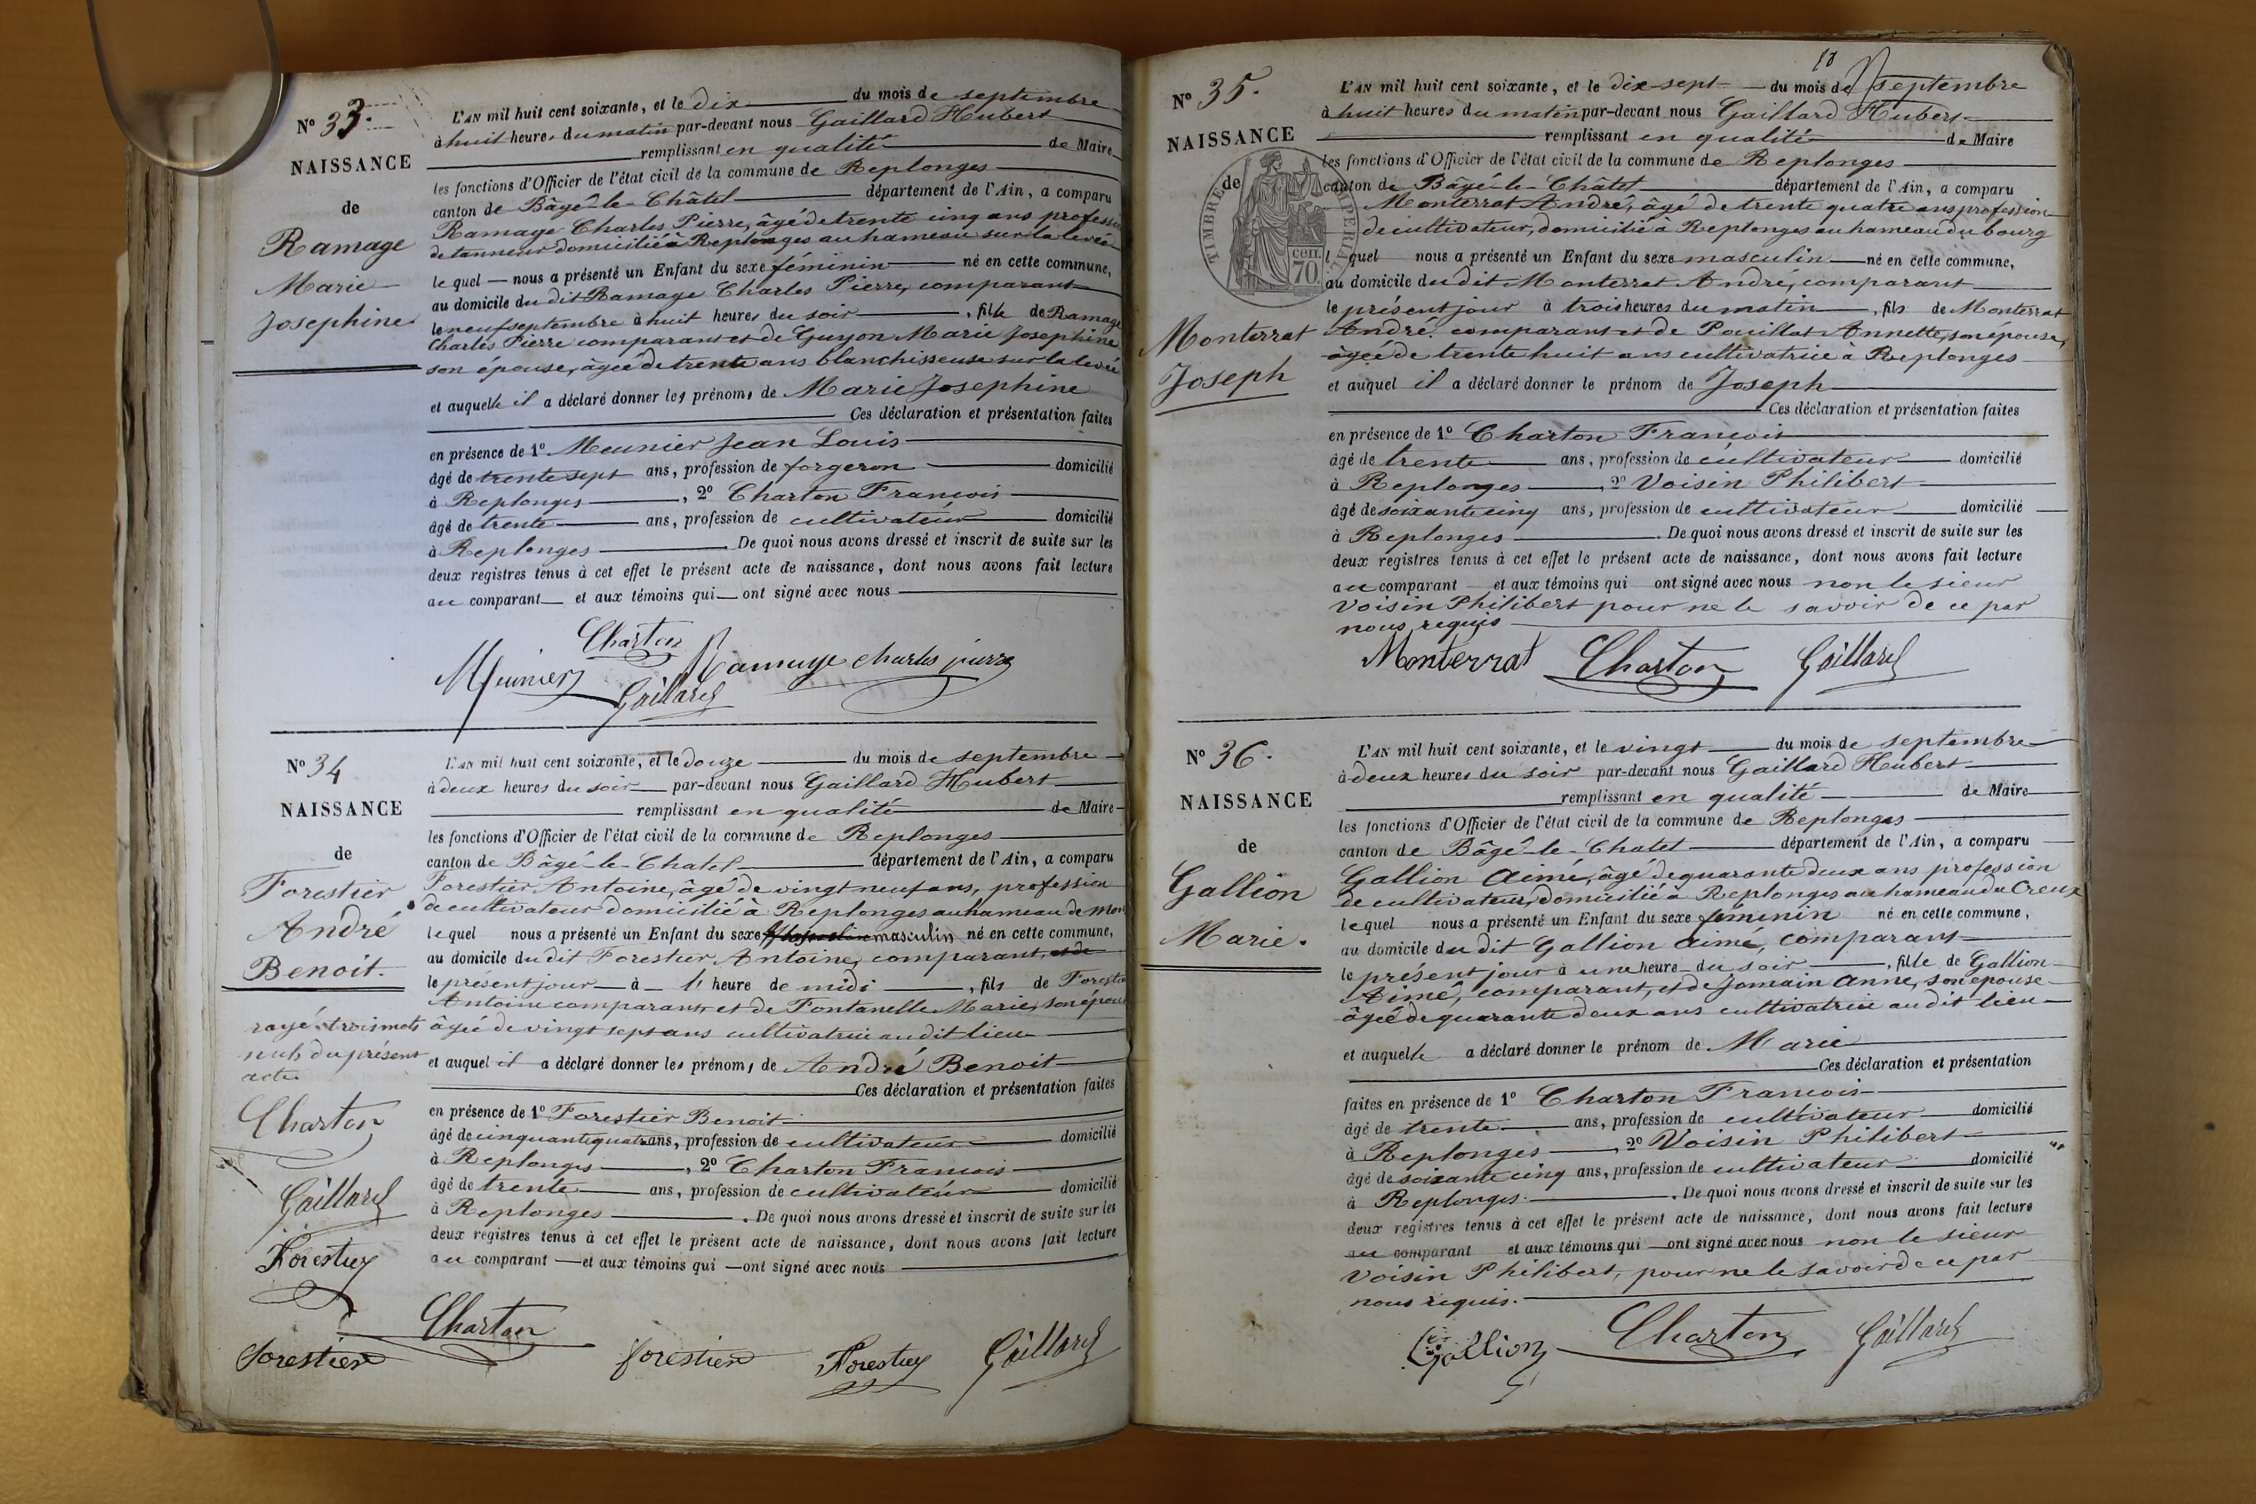 N° 33.
NAISSANCE
de
Ramage
Marie
Josephine
L'AN mil huit cent soixante, et le dix du mois de septembre
à huit heures du matin par-devant nous Gaillard Hubert
remplissant en qualité de Maire
les fonctions d'Officier de l'état civil de la commune de Replonges
canton de Bâgé-le-Châtel département de l'Ain, a comparu
Ramage Charles Pierre, âgé de trente cinq ans profession
de tanneur domicilié à Replonges au hameau sur la levée
le quel nous a présenté un Enfant du sexe féminin né en cette commune,
au domicile du dit Ramage Charles Pierre, comparant
le neuf septembre à huit heures du soir, fille de Ramage
Charles Pierre comparant et de Guyon Marie Josephine
son épouse, âgée de trente ans blanchisseuse sur la levée
et auquelle il a déclaré donner les prénoms de Marie Josephine
Ces déclaration et présentation faites
en présence de 1° Meunier Jean Louis
âgé de trente sept ans, profession de forgeron domicilié
à Replonges, 2° Charton François
âgé de trente ans, profession de cultivateur domicilié
à Replonges. De quoi nous avons dressé et inscrit de suite sur les
deux registres tenus à cet effet le présent acte de naissance, dont nous avons fait lecture
au comparant et aux témoins qui ont signé avec nous
Charton
Meunier Ramage charles pierre
Gaillard
N° 34
NAISSANCE
de
Forestier
André
Benoit.
rayé trois mots
nuls du présent
acte
Charton
Gaillard
Forestier
L'AN mil huit cent soixante, et le douze du mois de septembre
à deux heures du soir par-devant nous Gaillard Hubert
remplissant en qualité de Maire
les fonctions d'Officier de l'état civil de la commune de Replonges
canton de Bâgé-le-Chatel département de l'Ain, a comparu
Forestier Antoine, âgé de vingt neuf ans, profession
de cultivateur domicilié à Replonges au hameau de
le quel nous a présenté un Enfant du sexe masculin né en cette commune,
au domicile du dit Forestier Antoine, comparant, et de
le présent jour à l' heure de midi, fils de Forestier
Antoine comparant et de Fontanelle Marie, son épouse
âgée de vingt sept ans cultivatrice au dit lieu
et auquel il a déclaré donner les prénoms de André Benoit
Ces déclaration et présentation faites
en présence de 1° Forestier Benoit
âgé de cinquante quatre ans, profession de cultivateur domicilié
à Replonges, 2° Charton François
âgé de trente ans, profession de cultivateur domicilié
à Replonges. De quoi nous avons dressé et inscrit de suite sur les
deux registres tenus à cet effet le présent acte de naissance, dont nous avons fait lecture
au comparant et aux témoins qui ont signé avec nous
Charton
forestier forestier Forestier Gaillard
18
N° 35.
NAISSANCE
de
TIMBRE IMPERIAL
70 cen.
Monterrat
Joseph
L'AN mil huit cent soixante, et le dix sept du mois de septembre
à huit heures du matin par-devant nous Gaillard Hubert
remplissant en qualité de Maire
les fonctions d'Officier de l'état civil de la commune de Replonges
canton de Bâgé-le-Châtel département de l'Ain, a comparu
Monterrat André, âgé de trente quatre ans profession
de cultivateur, domicilié à Replonges au hameau du bourg
l quel nous a présenté un Enfant du sexe masculin né en cette commune,
au domicile du dit Monterrat André, comparant
le présent jour à trois heures du matin, fils de Monterrat
André comparant et de Pouillat Annette, son épouse,
âgée de trente huit ans cultivatrice à Replonges
et auquel il a déclaré donner le prénom de Joseph
Ces déclaration et présentation faites
en présence de 1° Charton François
âgé de trente ans, profession de cultivateur domicilié
à Replonges, 2° Voisin Philibert
âgé de soixante cinq ans, profession de cultivateur domicilié
à Replonges. De quoi nous avons dressé et inscrit de suite sur les
deux registres tenus à cet effet le présent acte de naissance, dont nous avons fait lecture
au comparant et aux témoins qui ont signé avec nous non le sieur
Voisin Philibert pour ne le savoir de ce par
nous requis
Monterrat Charton Gaillard
N° 36.
NAISSANCE
de
Gallion
Marie.
L'AN mil huit cent soixante, et le vingt du mois de septembre
à deux heures du soir par-devant nous Gaillard Hubert
remplissant en qualité de Maire
les fonctions d'Officier de l'état civil de la commune de Replonges
canton de Bâgé-le-Chatel département de l'Ain, a comparu
Gallion Aimé, âgé de quarante deux ans profession
de cultivateur, domicilié à Replonges au hameau du Creux
le quel nous a présenté un Enfant du sexe féminin né en cette commune,
au domicile du dit Gallion Aimé, comparant
le présent jour à une heure du soir, fille de Gallion
Aimé, comparant, et de Jomain Anne, son épouse
âgée de quarante deux ans cultivatrice au dit lieu
et auquelle a déclaré donner le prénom de Marie
Ces déclaration et présentation
faites en présence de 1° Charton François
âgé de trente ans, profession de cultivateur domicilié
à Replonges, 2° Voisin Philibert
âgé de soixante cinq ans, profession de cultivateur domicilié
à Replonges. De quoi nous avons dressé et inscrit de suite sur les
deux registres tenus à cet effet le présent acte de naissance, dont nous avons fait lecture
au comparant et aux témoins qui ont signé avec nous non le sieur
Voisin Philibert, pour ne le savoir de ce par
nous requis.
Gallion Charton Gaillard